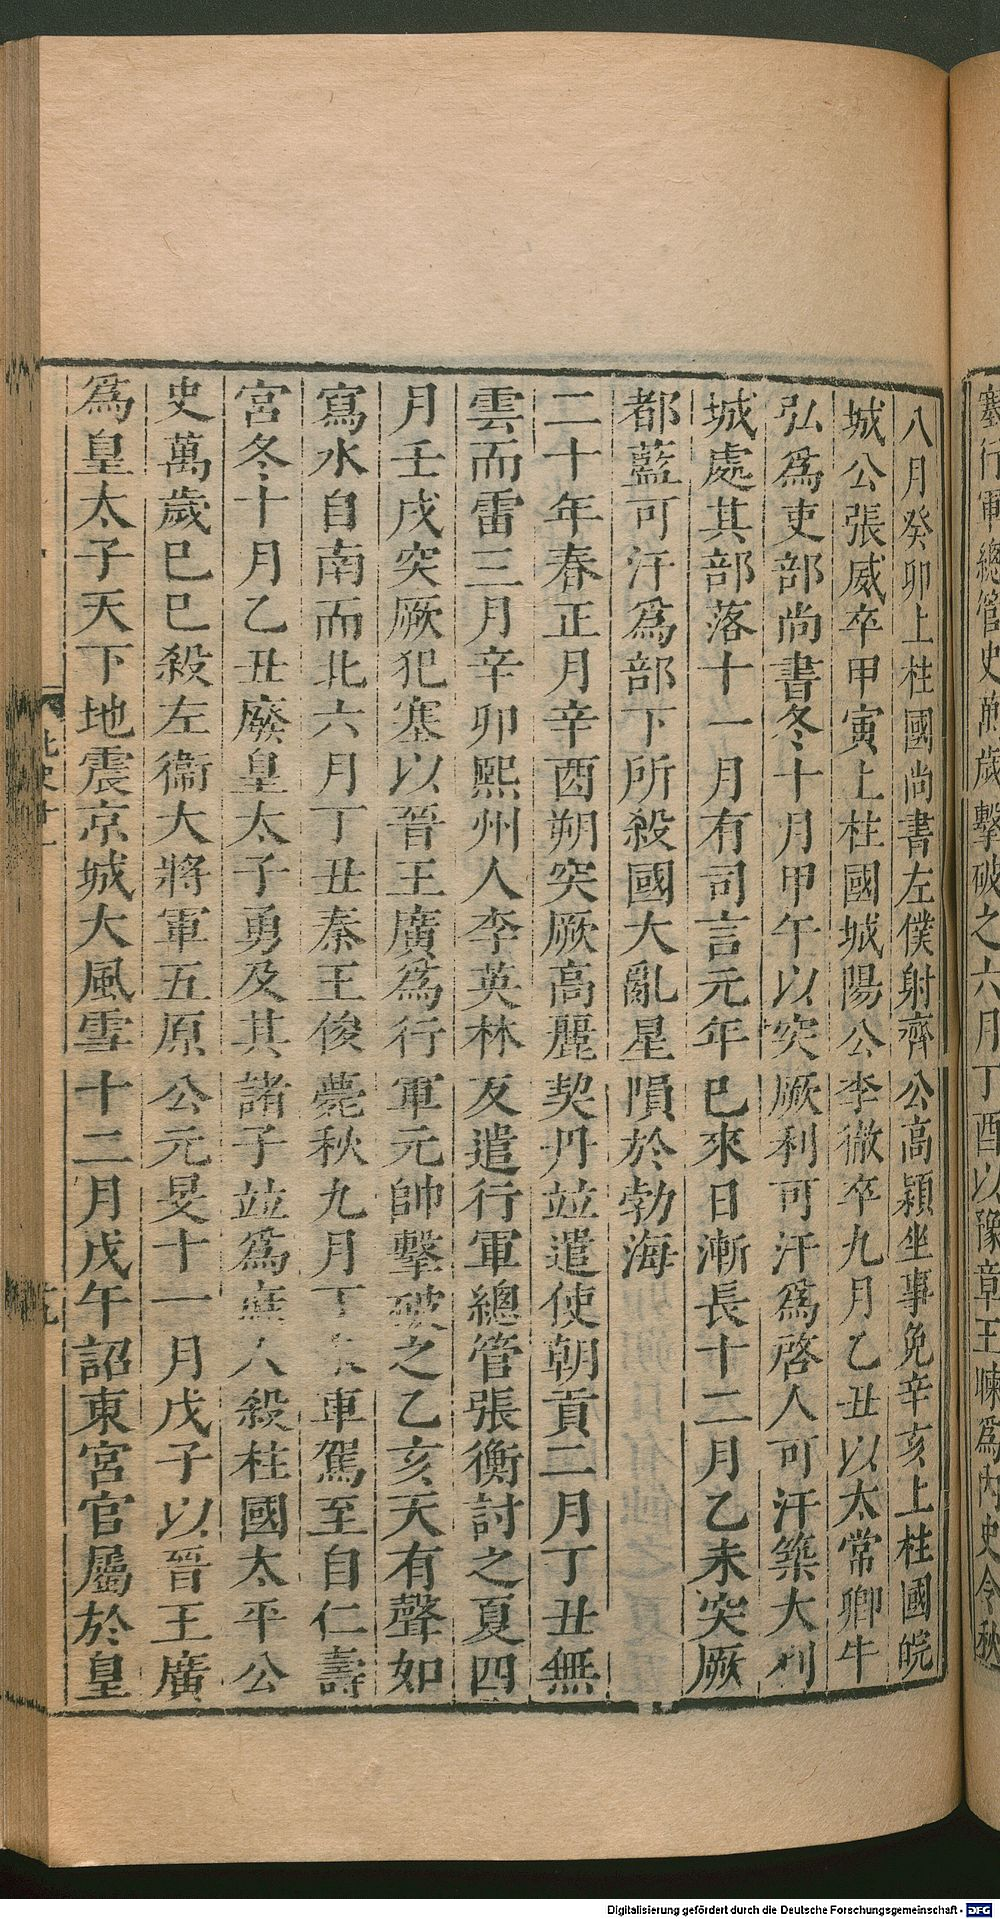 塞行軍總管史萬歲擊破之六月丁酉以豫章王暕爲內史令秋
八月癸卯上柱國尚書左僕射齊公高熲坐事免辛亥上柱國皖
城公張威卒甲寅上柱國城陽公李徹卒九月乙丑以太常卿牛
弘爲吏部尚書冬十月甲午以突厥利可汗爲啓人可汗築大利
城處其部落十一月有司言元年已來日漸長十二月乙未突厥
都藍可汗爲部下所殺國大亂星隕於勃海
二十年春正月辛酉朔突厥高麗契丹竝遣使朝貢二月丁丑無
雲而雷三月辛卯熙州人李英林反遣行軍總管張衡討之夏四
月壬戌突厥犯塞以晉王廣爲行軍元帥擊破之乙亥天有聲如
寫水自南而北六月丁丑秦王俊薨秋九月丁未車駕至自仁壽
宮冬十月乙丑廢皇太子勇及其諸子竝爲庶人殺柱國太平公
史萬歲己巳殺左衞大將軍五原公元旻十一月戊子以晉王廣
爲皇太子天下地震京城大風雪十二月戊午詔東宮官屬於皇
北史十一
Digitalisierung gefördert durch die Deutsche Forschungsgemeinschaft - DFG